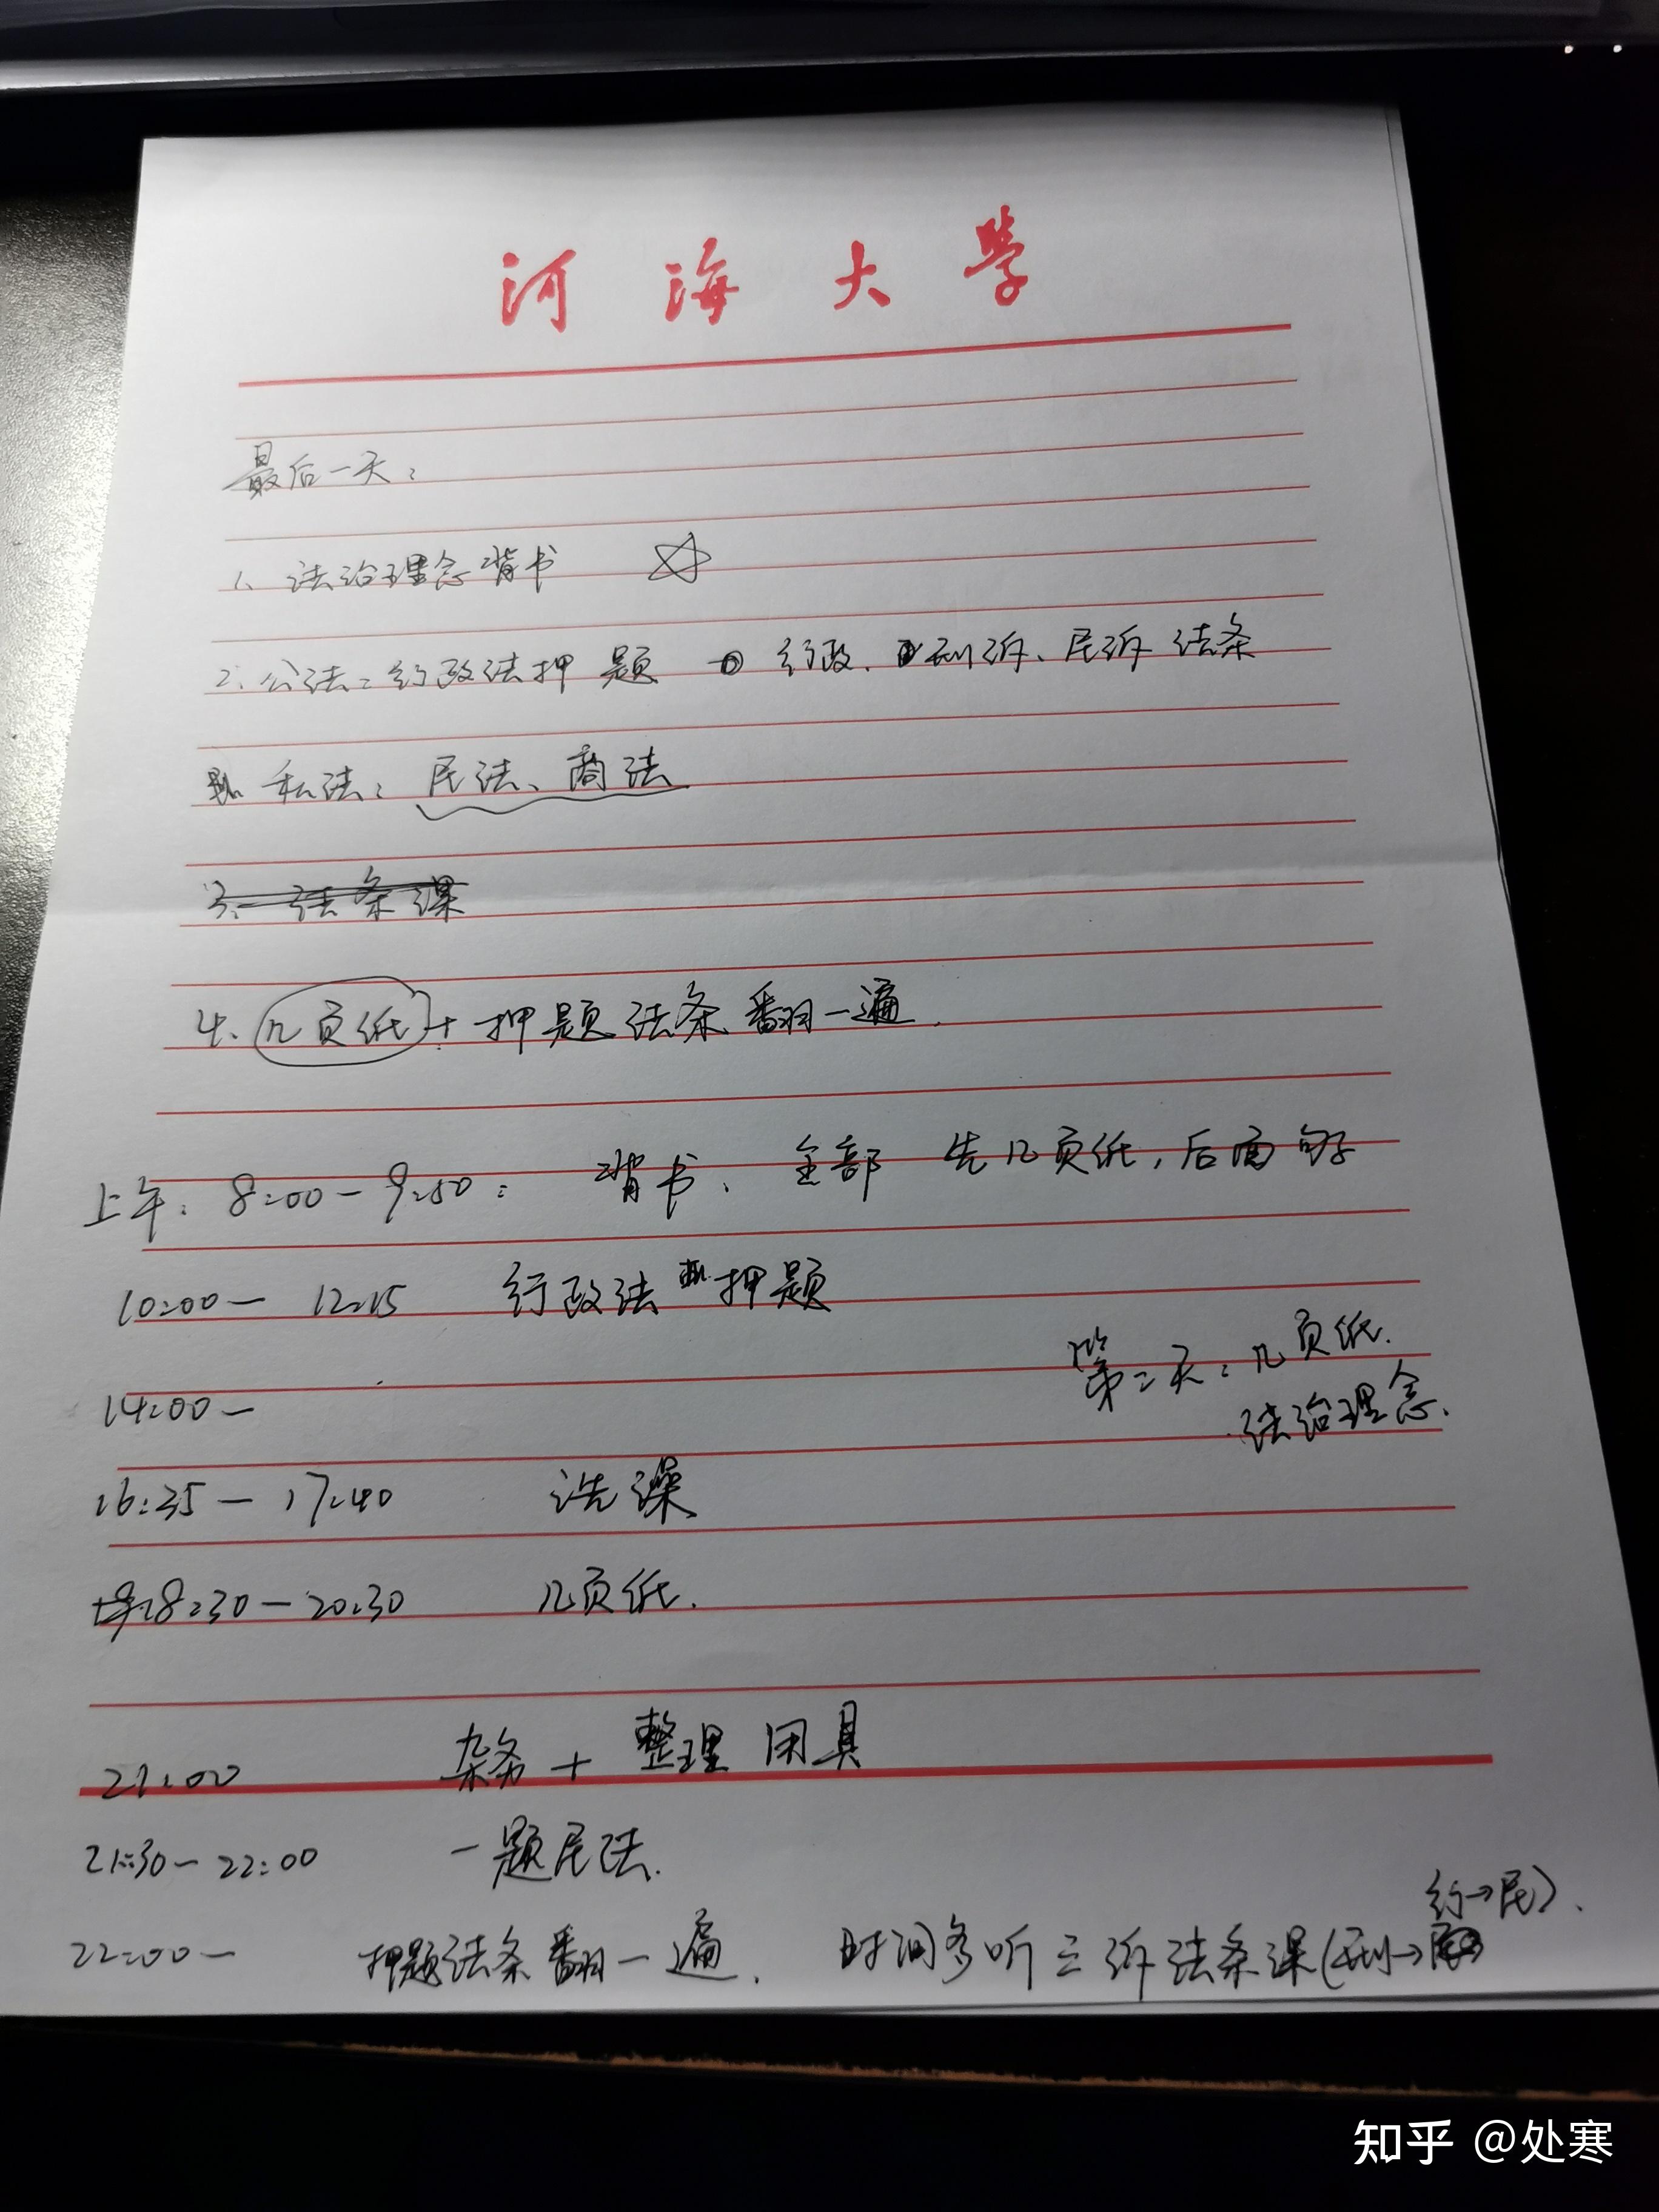 河海大學
最后一天:
1、法治理念背书
2、公法:行政法押题 行政、刑诉、民诉法条
私法:民法、商法
3、法条课
4、几页纸+押题法条翻一遍.
上午:8:00-9:50: 背书、全部 先几页纸,后面句子
10:00- 12:15 行政法押题
第二天:几页纸.
法治理念.
14:00-
16:35-17:40 洗澡
18:30-20:30 几页纸.
21:00 杂务+整理用具
21:30-22:00 一题民法.
22:00- 押题法条翻一遍. 时间多听三诉法条课(刑→行→民).
知乎 @处寒